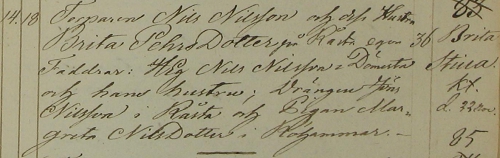 14. 18 Torparen Nils Nilsson och dess Hustru 85
Brita Pehrs Dotter på Råsta egor 36 Brita
Faddrar: Hr Nils Nilsson i Domsta Stina.
och hans hustru; Drängen
Nilsson i Råsta och Pigan Mar-
greta Nils Dotter i Rohammar. 85